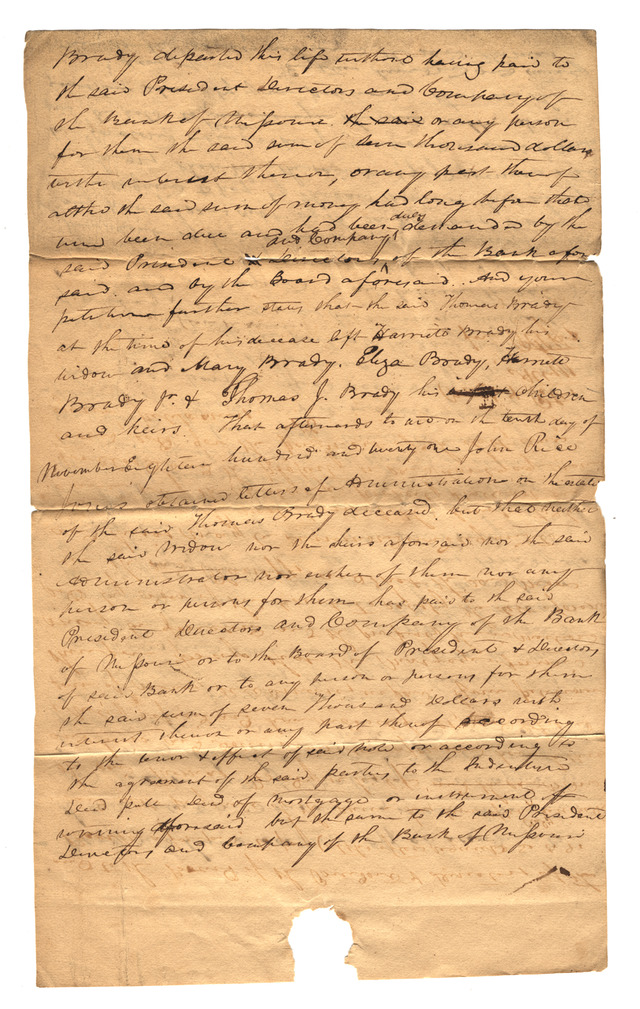 Brady departed this life without having paid to
the said President Directors and Company of
the Bank of Missouri the said or any person
for them the said sum of seven thousand dollars
with interest thereon, or any part thereof
altho the said sum of money had long before that
time been due and had been duly demanded by the
said President & Directors and Company of the Bank afore
said and by the Board aforesaid. And your
petitioners further state that the said Thomas Brady
at the time of his decease left Harriette Brady his
widow and Mary Brady, Eliza Brady, Harriette
Brady Jr. & Thomas J. Brady his children
and heirs. That afterwards to wit on the tenth day of
November Eighteen hundred and twenty one John Rice
Jones obtained letters of Administration on the estate
of the said Thomas Brady deceased. but that neither
the said Widow nor the heirs aforesaid nor the said
Administrator nor either of them nor any
person or persons for them has paid to the said
President Directors and Company of the Bank
of Missouri or to the Board of President & Directors
of said Bank or to any person or persons for them
the said sum of seven Thousand Dollars with
interest thereon or any part thereof according
to the tenor & effect of said note or according to
the agreement of the said parties to the Indenture
Deed poll Deed of Mortgage or instrument of
writing aforesaid but the same to the said President
Directors and Company of the Bank of Missouri